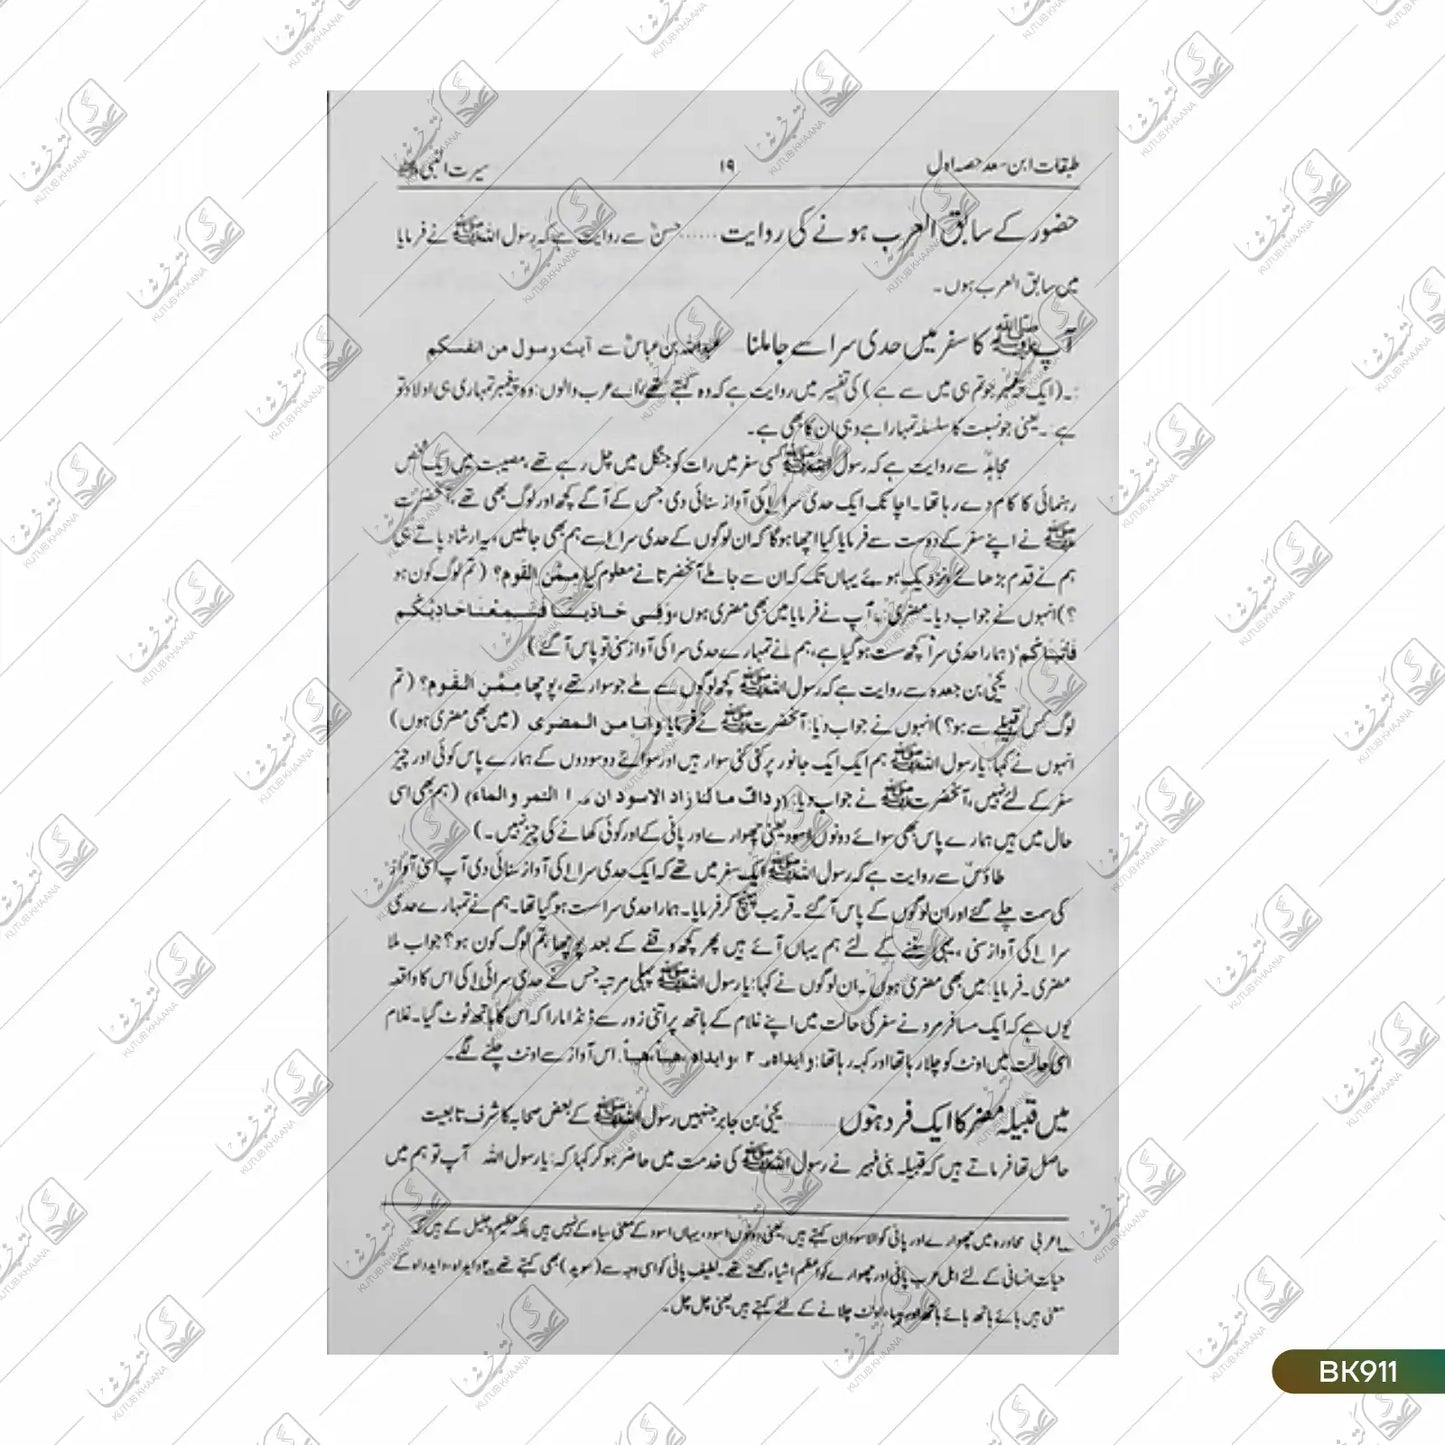 طبقات ابن سعد حصہ اول ۱۹ سیرت النبی ﷺ
حضور کے سابق العرب ہونے کی روایت ...... حسنؒ سے روایت ہے کہ رسول اللہ ﷺ نے فرمایا
میں سابق العرب ہوں۔
آپ ﷺ کا سفر میں حدی سرا سے جا ملنا عبداللہ بن عباسؓ سے آیت رسول من انفسکم
:۔(ایک پیغمبر جو تم ہی میں سے ہے) کی تفسیر میں روایت ہے کہ وہ کہتے تھے، اے عرب والوں: وہ پیغمبر تمہاری ہی اولاد تو
ہے:۔ یعنی جو نسبت کا سلسلہ تمہارا ہے وہی ان کا بھی ہے۔
مجاہدؒ سے روایت ہے کہ رسول اللہ ﷺ کسی سفر میں رات کو جنگل میں چل رہے تھے، مصیبت میں ایک شخص
رہنمائی کا کام دے رہا تھا۔ اچانک ایک حدی سرا کی آواز سنائی دی جس کے آگے کچھ اور لوگ بھی تھے، آنحضرت
ﷺ نے اپنے سفر کے دوست سے فرمایا کیا اچھا ہوگا کہ ان لوگوں کے حدی سرا سے ہم بھی جاملیں، یہ ارشاد پاتے ہی
ہم نے قدم بڑھائے نزدیک ہوئے یہاں تک کہ ان سے جا ملے آنحضرت نے معلوم کیا مِمَّنِ القَوم؟ (تم لوگ کون ہو
؟) انہوں نے جواب دیا۔ مضری آپ نے فرمایا میں بھی مضری ہوں،
(ہمارا حدی سرا کچھ ست ہوگیا ہے، ہم نے تمہارے حدی سرا کی آواز سنی تو پاس آگئے)
یحییٰ بن جعدہ سے روایت ہے کہ رسول اللہ ﷺ کچھ لوگوں سے ملے جو سوار تھے، پوچھا مِمَّنِ القَوم؟ (تم
لوگ کس قبیلے سے ہو؟) انہوں نے جواب دیا: آنحضرت ﷺ نے فرمایا وانا من المضری (میں بھی مضری ہوں)
انہوں نے کہا: یا رسول اللہ ﷺ ہم ایک ایک جانور پر کئی کئی سوار ہیں اور سوائے دوسودوں کے ہمارے پاس کوئی اور چیز
سفر کے لئے نہیں، آنحضرت ﷺ نے جواب دیا: مالنا زاد الاسودان التمر والماء) (ہم بھی اسی
حال میں ہیں ہمارے پاس بھی سوائے دونوں اسود یعنی چھوارے اور پانی کے اور کوئی کھانے کی چیز نہیں۔)
طاؤسؒ سے روایت ہے کہ رسول اللہ ﷺ ایک سفر میں تھے کہ ایک حدی سرا کی آواز سنائی دی آپ اسی آواز
کی سمت چلے گئے اور ان لوگوں کے پاس آگئے۔ قریب پہنچ کر فرمایا۔ ہمارا حدی سرا ست ہوگیا تھا۔ ہم نے تمہارے حدی
سرا کی آواز سنی، یہی سننے کے لئے ہم یہاں آئے ہیں پھر کچھ وقفے کے بعد پوچھا تم لوگ کون ہو؟ جواب ملا
مضری۔ فرمایا: میں بھی مضری ہوں۔ ان لوگوں نے کہا: یا رسول اللہ ﷺ پہلی مرتبہ جس نے حدی سرائی کی اس کا واقعہ
یوں ہے کہ ایک مسافر مرد نے سفر کی حالت میں اپنے غلام کے ہاتھ پر اتنی زور سے ڈنڈا مارا کہ اس کا ہاتھ ٹوٹ گیا۔ غلام
اسی حالت میں اونٹ کو چلا رہا تھا اور کہہ رہا تھا: وایداہ ۲، وایداہ، ھیبا، ھیبا۔ اس آواز سے اونٹ چلنے لگے۔
میں قبیلہ مضر کا ایک فرد ہوں ......... یحییٰ بن جابر جنہیں رسول اللہ ﷺ کے بعض صحابہ کا شرف تابعیت
حاصل تھا فرماتے ہیں کہ قبیلہ بنی فہیر نے رسول اللہ ﷺ کی خدمت میں حاضر ہوکر کہا کہ: یا رسول اللہ آپ تو ہم میں
۱۔ عربی محاورہ میں چھوارے اور پانی کو الاسودان کہتے ہیں، یعنی دونوں اسود، یہاں اسود کے معنی سیاہ کے نہیں ہیں بلکہ عظیم وجلیل کے ہیں کہ
حیات انسانی کے لئے اہل عرب پانی اور چھوارے کو اعظم اشیاء کہتے تھے۔ لطیف پانی کو اسی وجہ سے (سوید) بھی کہتے تھے۔ ۲ وایداہ، وایداہ کے
معنی ہیں ہائے ہاتھ ہائے ہاتھ اور ھیبا، اونٹ چلانے کے لئے کہتے ہیں یعنی چل چل۔
کتب خانہ
KUTUB KHAANA
BK911